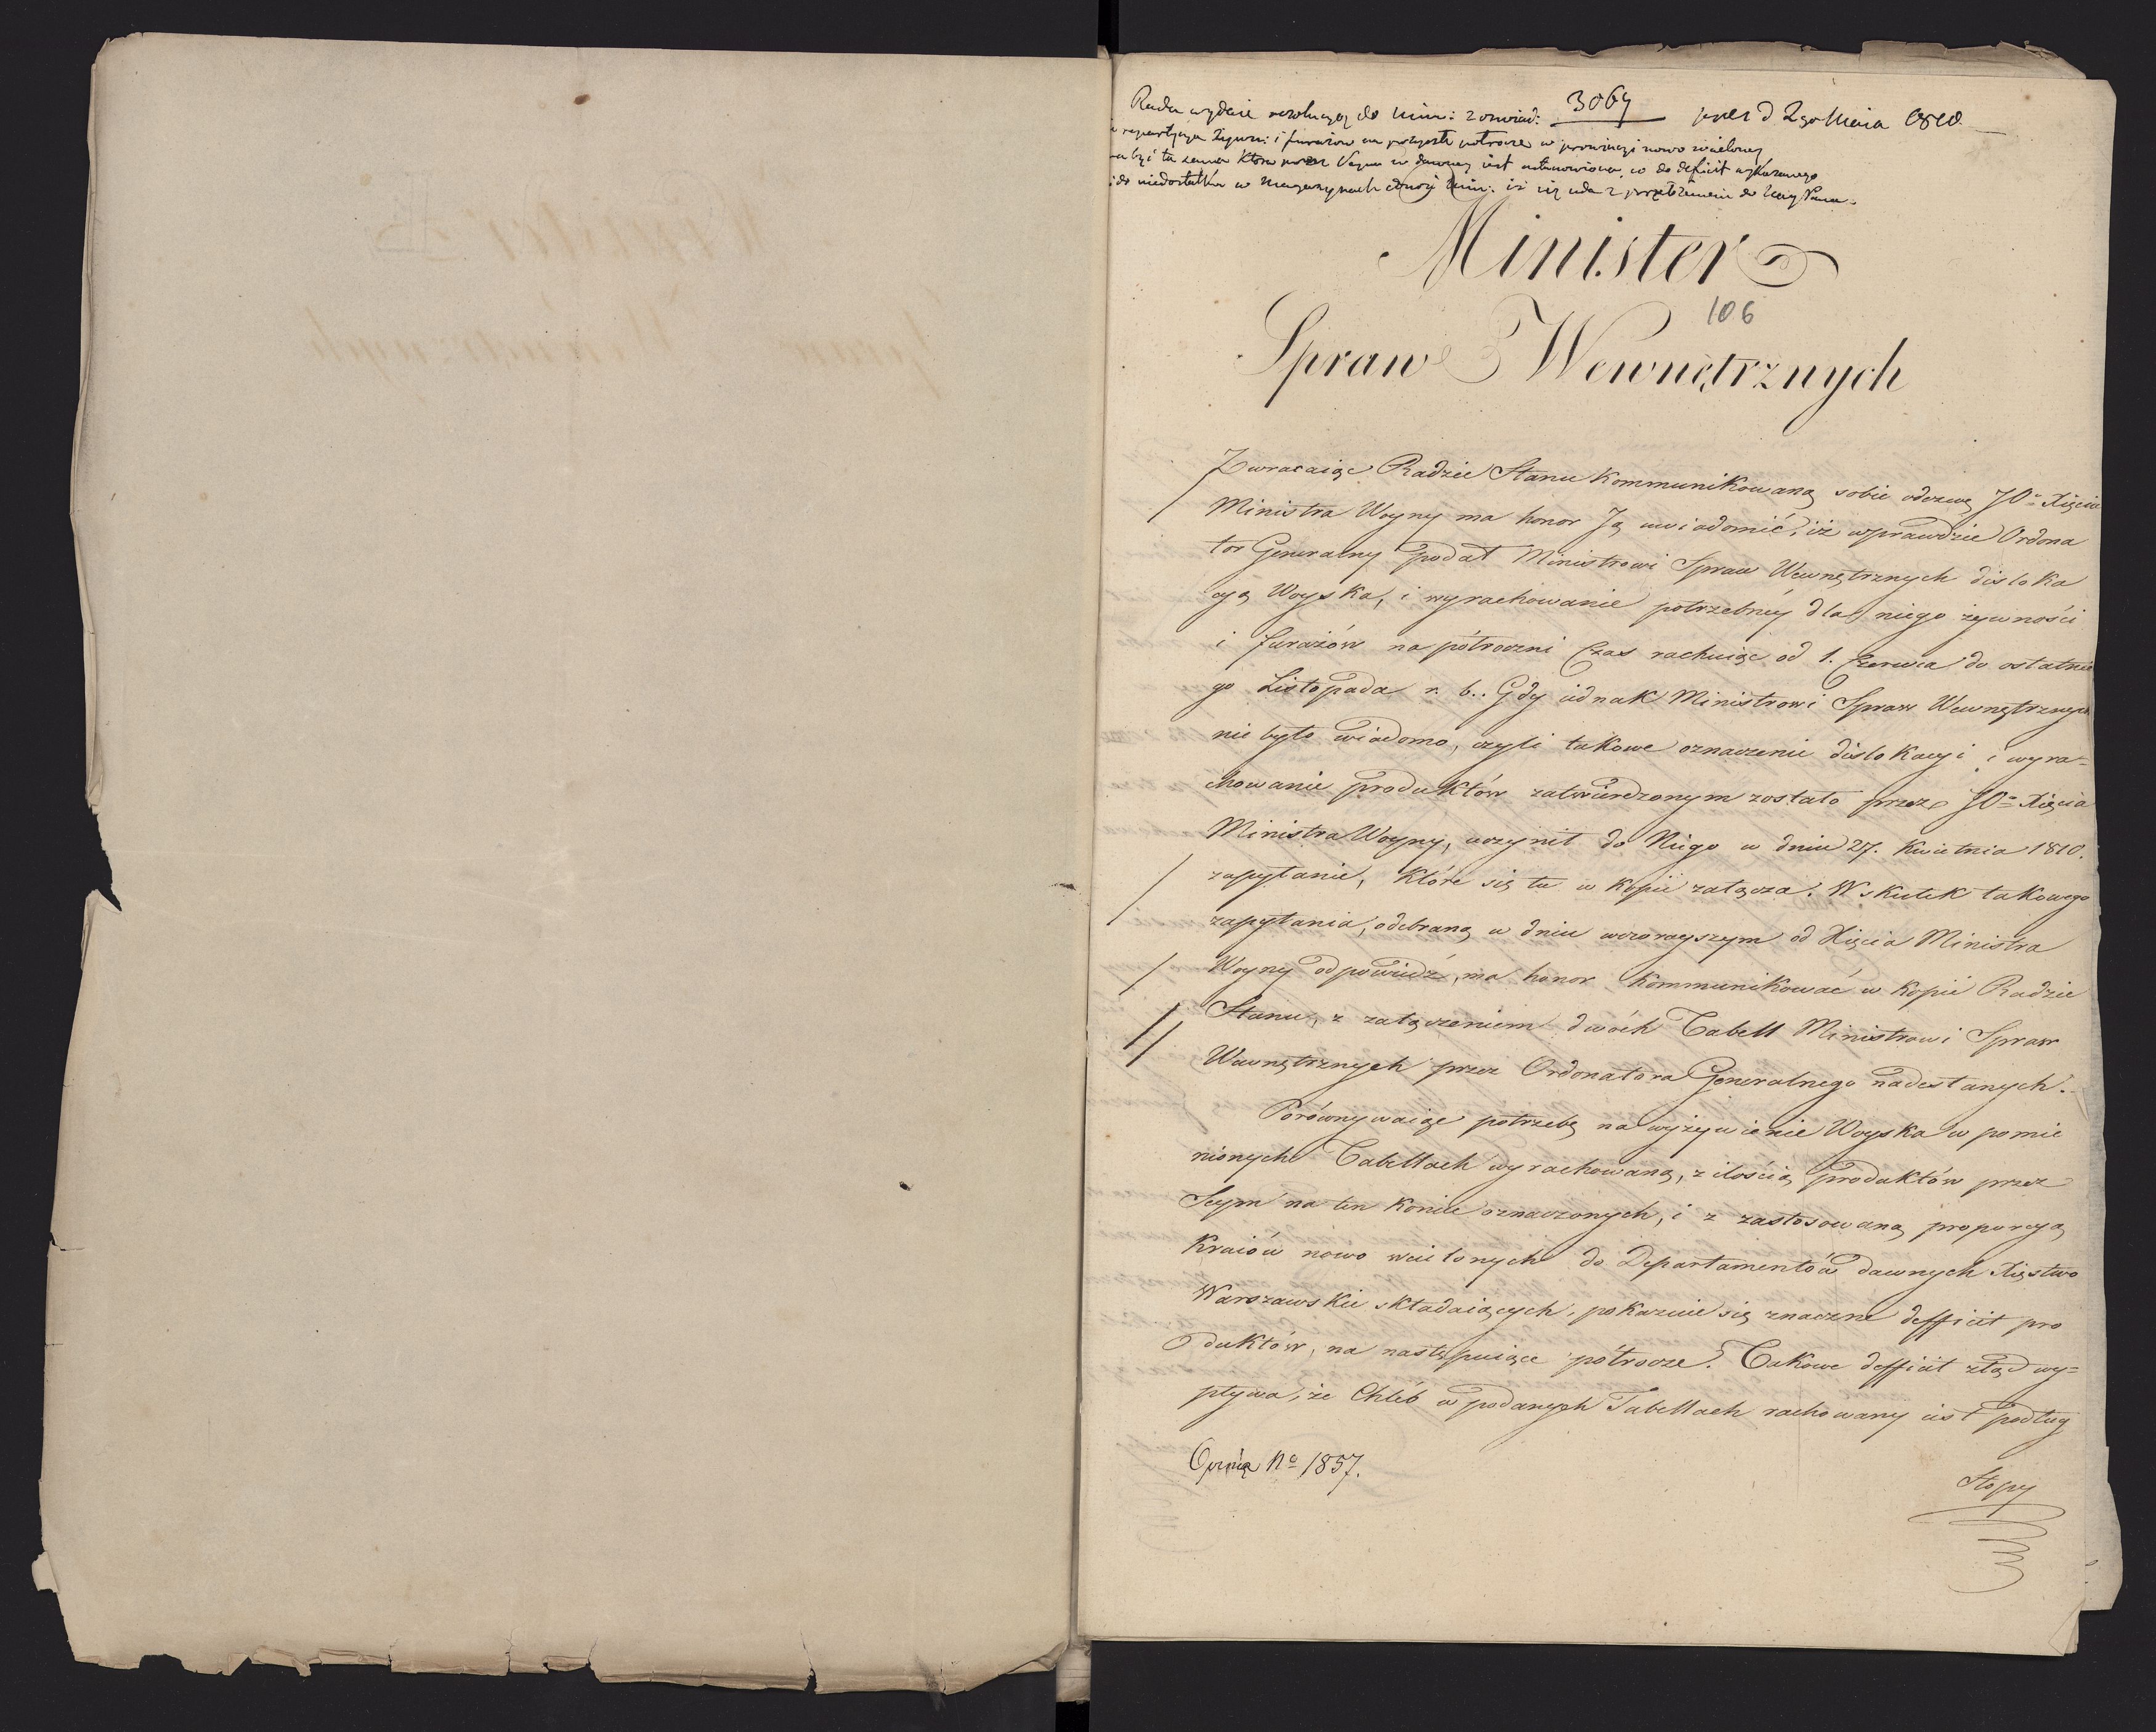 3064 prez d 2go Maia 1810.
Rada wydaie rezolucyą do Min: z oswiad:
repartycya żywn: i furażów na przyszłe połrocze w prowincyi nowo wcieloney
ma być ta sama ktora przez Seym w dawney iest ustanowiona, co do deficit wykazanego
i do niedostatku w magazynach Min: iż się uda z przełożeniem do Nay Pana.
Minister
106
Spraw Wewnętrznych
Zwracaiąc Radzie Stanu kommunikowaną sobie odezwę JO: Xięcia
Ministra Woyny ma honor Ją uwiadomić, iż wprawdzie Ordona
tor Generalny podał Ministrowi Spraw Wewnętrznych disloka
cyą Woyska, i wyrachowanie potrzebney dla niego żywności
i furażów na półroczni Czas rachuiąc od 1. Czerwca do ostatnie
go Listopada r. b.. Gdy iednak Ministrowi Spraw Wewnętrznych
nie było wiadomo, czyli takowe oznaczenie dislokacyi i wyra=
chowanie produktów zatwierdzonym zostało przez JO: Xięcia
Ministra Woyny, uczynił do Niego w dniu 27. Kwietnia 1810.
zapytanie, które się tu w kopii załącza. W skutek takowego
zapytania, odebraną w dniu wczorayszym od Xięcia Ministra
Woyny odpowiedź, ma honor kommunikować w kopii Radzie
Stanu, z załączeniem dwóch Tabell Ministrowi Spraw
Wewnętrznych przez Ordonatora Generalnego nadesłanych.
Porównywaiąc potrzebę na wyżywienie Woyska w pomie
nionych Tabellach wyrachowaną, z ilością produktów przez
Seym na ten koniec oznaczonych, i z zastosowaną proporcyą
Kraiów nowo wcielonych do Departamentów dawnych Xięstwo
Warszawskie składaiących, pokazuie się znaczne defficit pro
duktów, na następuiące półrocze. Takowe defficit ztąd wy=
pływa, że Chleb w podanych Tabellach rachowany iest podług
No 1857.
Stopy